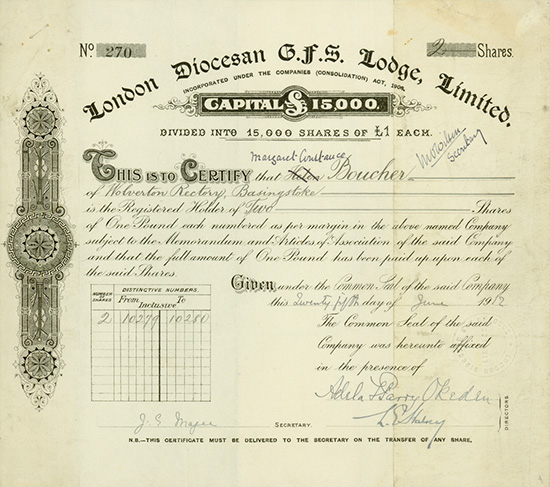 No 270
2 Shares.
London Diocesan G.F.S. Lodge, Limited.
INCORPORATED UNDER THE COMPANIES (CONSOLIDATION) ACT, 1908.
CAPITAL £ 15,000.
DIVIDED INTO 15,000 SHARES OF £1 EACH.
Margaret Constance
THIS IS TO CERTIFY that Helen Boucher
Secretary
of Wolverton Rectory, Basingstoke
is the Registered Holder of Two Shares
of One Pound each numbered as per margin in the above named Company
subject to the Memorandum and Articles of Association of the said Company
and that the full amount of One Pound has been paid up upon each
of the said Shares.
Given under the Common Seal of the said Company
this Twenty fifth day of June 1912
NUMBER OF SHARES
DISTINCTIVE NUMBERS.
From To
Inclusive
2 10279 10280
The Common Seal of the said
Company was hereunto affixed
in the presence of
Adela F Parry Okeden
DIRECTORS
SECRETARY.
N.B.—THIS CERTIFICATE MUST BE DELIVERED TO THE SECRETARY ON THE TRANSFER OF ANY SHARE.